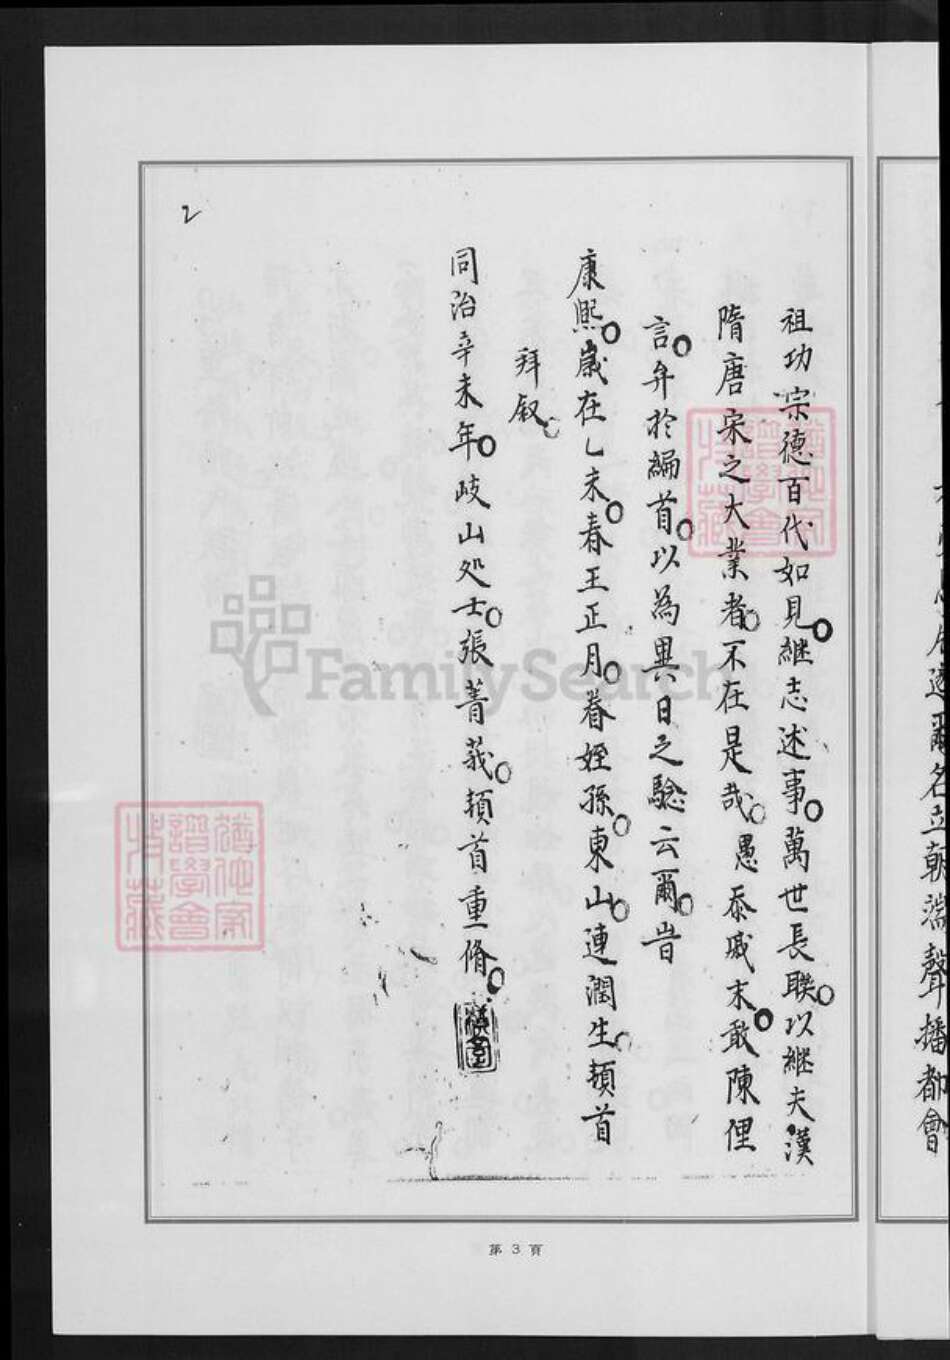 祖功宗德百代如見繼志述事萬世長聯以繼夫漢
隋唐宋之大業者不在是哉愚忝戚末敢陳俚
言弁於編首以為異日之驗云爾旹
康熙歲在乙未春王正月眷姪孫東山連潤生頓首
拜叙
同治辛未年岐山処士張菁莪頓首重脩
2
第 3 頁
逺爾名立朝端聲播都會
FamilySearch